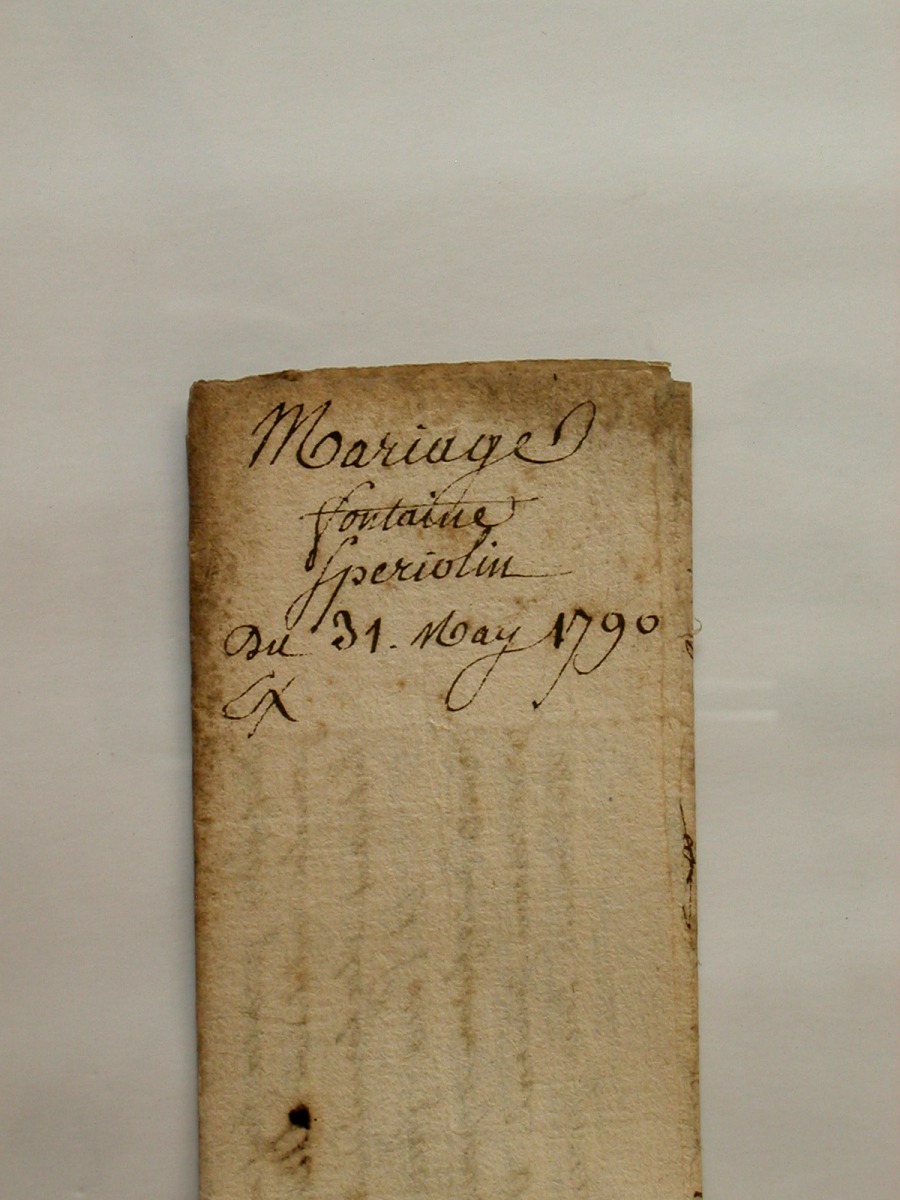 Mariage
fontaine
Speriolin
Du 31. May 1790